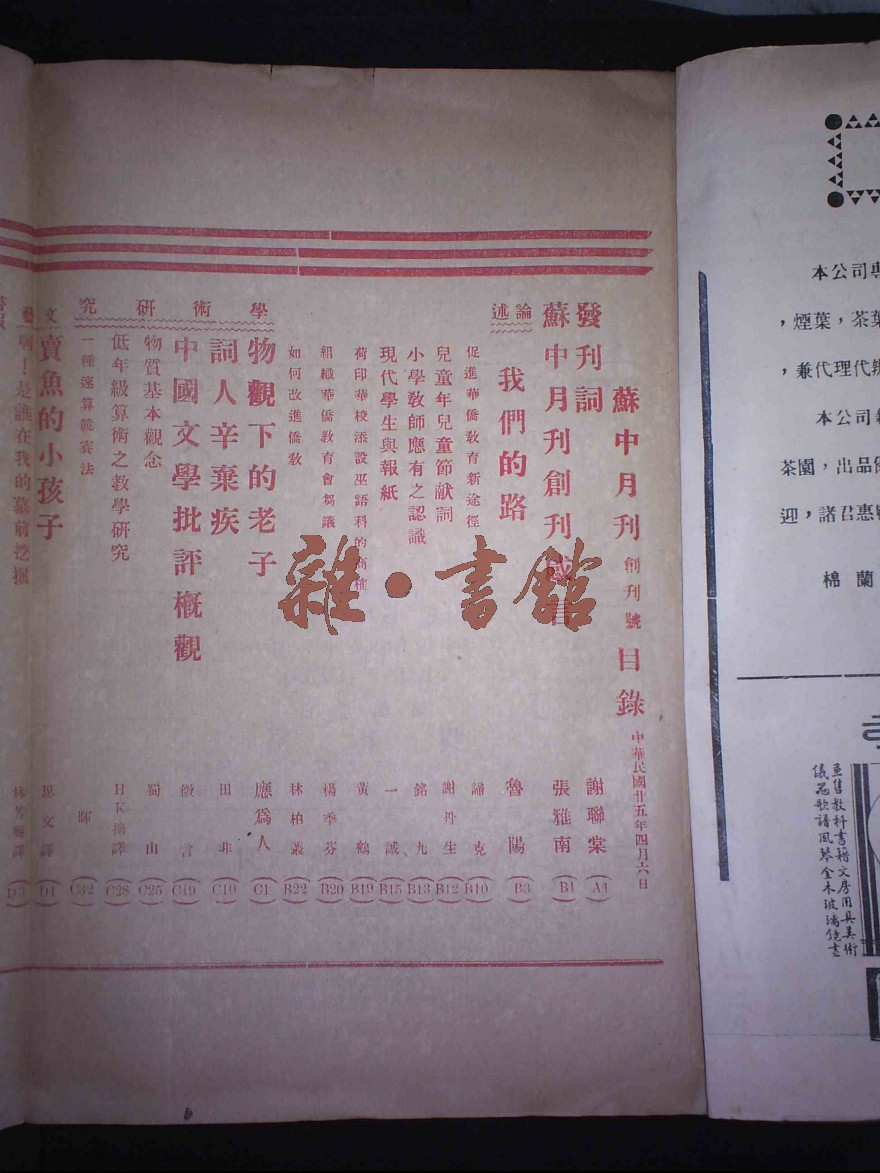 蘇中月刊創刊號目錄 中華民國廿五年四月六日
發刊詞 謝聯棠 (A1)
蘇中月刊創刊感言 張雅南 (B1)
論述
我們的路 魯陽 (B3)
促進華僑教育新途徑 歸克 (B10)
兒童年兒童節献詞 謝丹生 (B12)
小學教師應有之認識 銘九 (B13)
現代學生與報紙 一誠 (B15)
荷印華校添設巫語科的商榷 黃鶴 (B19)
組織華僑教育會芻議 楊季芬 (B20)
如何改進僑教 林柏叢 (B22)
學術研究
物觀下的老子 應爲人 (C1)
詞人辛棄疾 田非 (C10)
中國文學批評概觀 微言 (C19)
物質基本觀念 蜀山 (C25)
低年級算術之教學研究 HK摘譯 (C28)
一種速算競賽法 暉 (C32)
文藝
賣魚的小孩子 思文譯 (D1)
啊!是誰在我的墓前挖掘 譯 (D3)
雜·書館
本公司專
,煙葉,茶葉
,兼代理代辦
本公司
茶園,出品
迎,諸召惠
棉蘭
亞售教科書籍文房用具美術
儀器歌譜風琴金木玻璃鏡畫